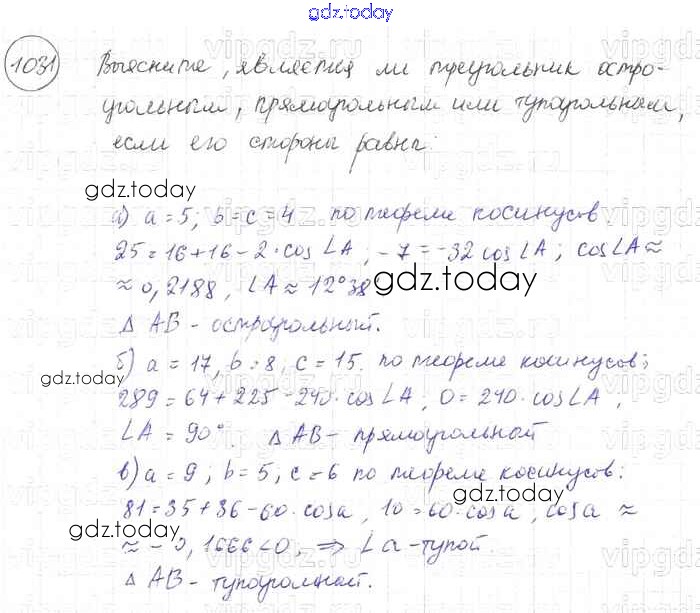 gdz.today
1031 Выясните, является ли треугольник остро-
угольным, прямоугольным или тупоугольным,
если его стороны равны:
gdz.today
а) a = 5; b = c = 4 по теореме косинусов.
25 = 16 + 16 - 2 · cos ∠A, - 7 = -32 cos ∠A; cos∠A ≈
≈ 0,2188, ∠A ≈ 12°38
gdz.today
Δ AB - остроугольный.
б) a = 17, b = 8, c = 15. по теореме косинусов:
gdz.today
289 = 64 + 225 - 240 · cos ∠A; 0 = 240 · cos ∠A,
∠A = 90°. Δ AB - прямоугольный
в) a = 9; b = 5; c = 6 по теореме косинусов:
gdz.today
81 = 35 + 36 - 60 · cosa, 10 = 60 · cosa, cosa ≈
gdz.today
≈ - 0,1666 < 0, ⇒ ∠a - тупой.
Δ AB - тупоугольный.